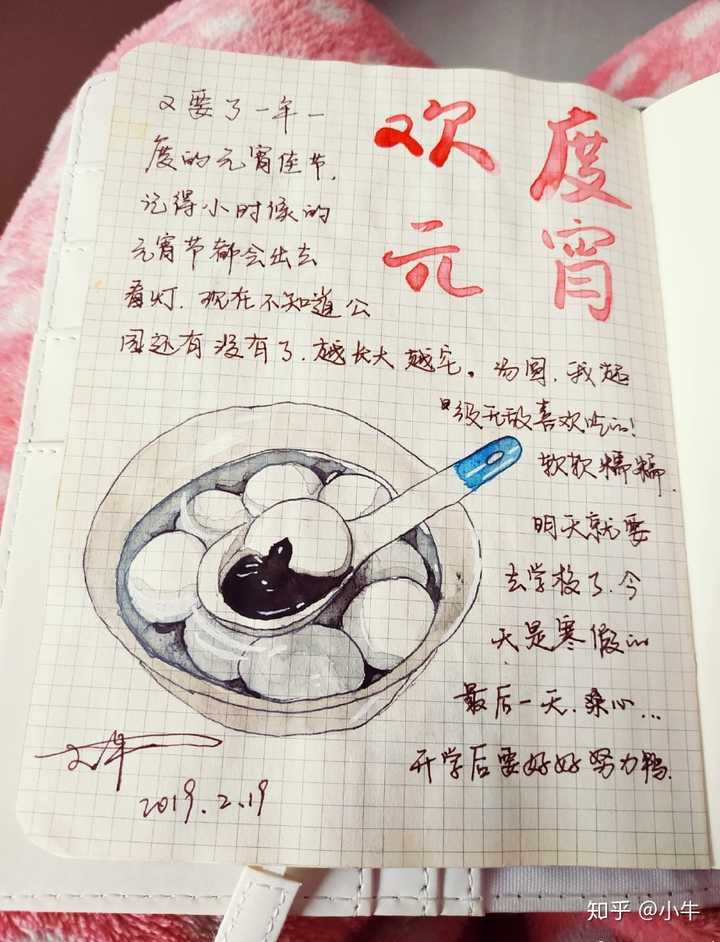 欢度
元宵
又要了一年一
度的元宵佳节,
记得小时候的
元宵节都会出去
看灯.现在不知道公
园还有没有了.越长大越宅。汤圆.我超
级无敌喜欢吃的!
软软糯糯.
明天就要
去学校了.今
天是寒假的
最后一天.桑心...
开学后要好好努力鸭.
2019.2.19
知乎 @小牛